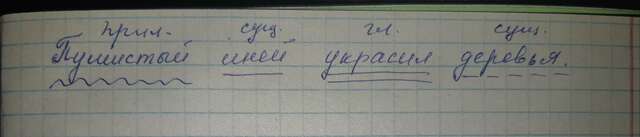 прил. сущ. гл. сущ.
Пушистый иней украсил деревья.